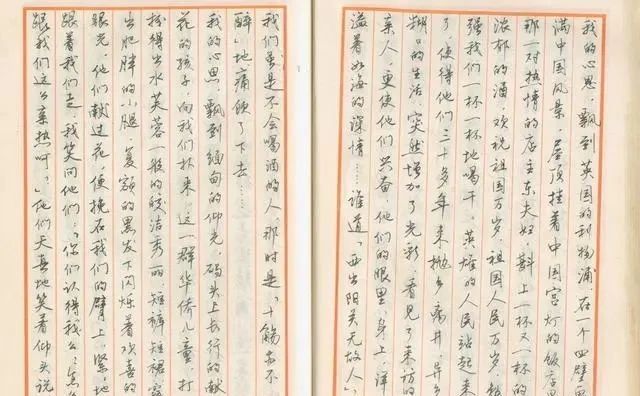 我的心思，飘到英国的利物浦，在一个四壁画
满中国风景，屋顶挂着中国宫灯的饭店里
那一对热情的店主东夫妇，斟上一杯又一杯
浓郁的酒，欢祝祖国万岁，祖国人民万岁，
强我们一杯一杯地喝干。英雄的人民站起来
了，使得他们三十多年来抛乡离井，异乡
糊口的生活，突然增加了光彩，看见了来访的
亲人，更使他们兴奋，他们的眼里、身上，洋
溢着如海的深情……谁道“西出阳关无故人”，
我们虽是不会喝酒的人，那时是“十觞亦不
醉”地痛饮了下去……
我的心思，飘到缅甸的仰光，码头上长行的献
花的孩子，向我们扑来，这一群华侨儿童，打
扮得出水芙蓉一般的皎洁秀丽，短裤短裙露
出肥胖的小腿，覆额的黑发下闪烁着欢喜的
眼光，他们献过花，便挽在我们的臂上，紧紧地
跟着我们走，我笑问他们：“你们认得我么？怎么
跟我们这么亲热呵？”他们天真地笑着仰头说